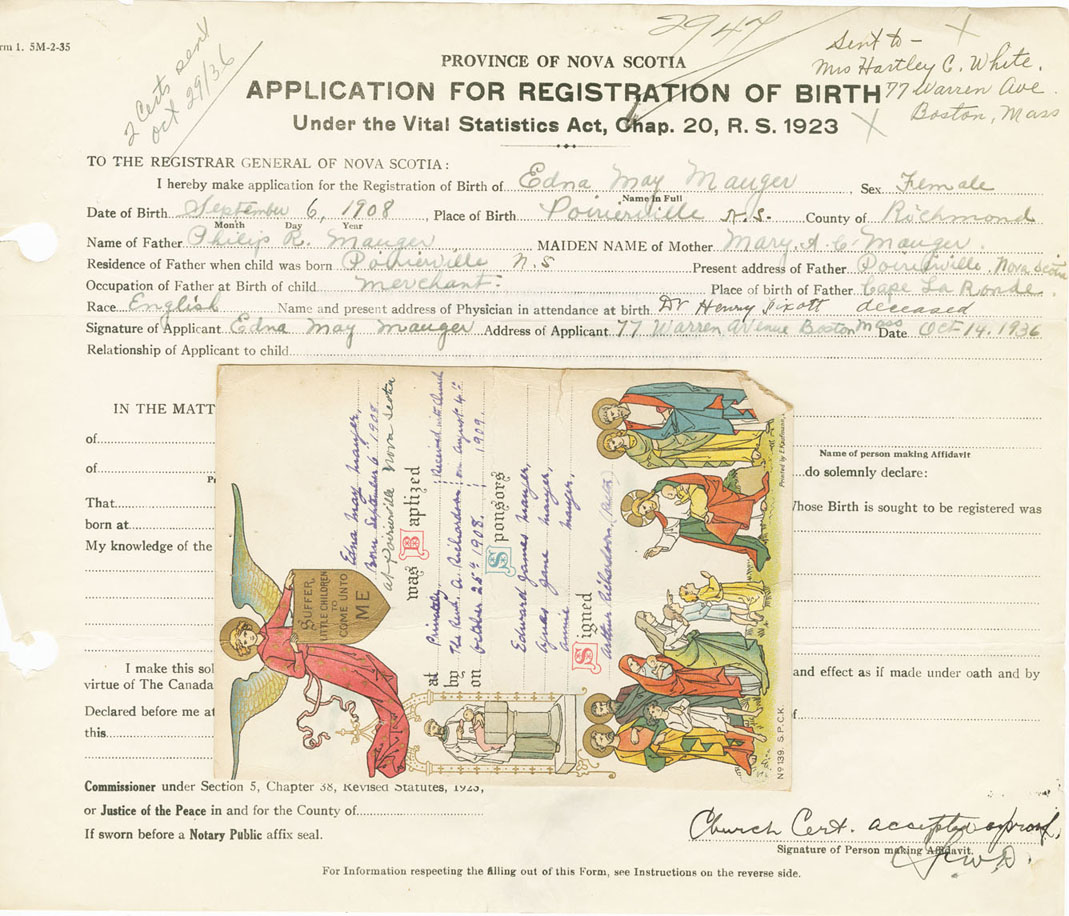 rm 1. 5M-2-35
2 Certs sent
Oct 29/36
2947
Sent to -
Mrs Hartley C. White.
77 Warren Ave.
Boston, Mass
PROVINCE OF NOVA SCOTIA
APPLICATION FOR REGISTRATION OF BIRTH
Under the Vital Statistics Act, Chap. 20, R. S. 1923
TO THE REGISTRAR GENERAL OF NOVA SCOTIA:
I hereby make application for the Registration of Birth of Edna May Mauger, Sex Female
Name in Full
Date of Birth September 6, 1908, Place of Birth Poirierville N.S. County of Richmond
Month Day Year
Name of Father Philip R. Mauger, MAIDEN NAME of Mother Mary. A. C. Mauger.
Residence of Father when child was born Poirierville N.S Present address of Father Poirierville, Nova Scotia
Occupation of Father at Birth of child merchant. Place of birth of Father Cape La Ronde.
Race English Name and present address of Physician in attendance at birth Dr Henry deceased
Signature of Applicant Edna May Mauger Address of Applicant 77 Warren Avenue Boston Mass Date Oct 14. 1936
Relationship of Applicant to child
IN THE MATT
of
of
Name of person making Affidavit
do solemnly declare:
That
hose Birth is sought to be registered was
born at
My knowledge of the
I make this sol
and effect as if made under oath and by
virtue of The Canada
Declared before me at
f
this
Commissioner under Section 5, Chapter 38, Revised Statutes, 1923,
or Justice of the Peace in and for the County of
If sworn before a Notary Public affix seal.
Church Cert. accepted as proof.
Signature of Person making Affidavit.
For Information respecting the filling out of this Form, see Instructions on the reverse side.
SUFFER
LITTLE CHILDREN
TO
COME UNTO
ME
Edna May Mauger,
Born September 6th 1908
at Poirierville Nova Scotia
was Baptized
at Privately Received into Church
by The Revd. A. Richardson on August 4th
on October 25th 1908. 1909.
Sponsors
Edward James Mauger,
Agnes Jane Mauger,
Annie Mauger,
Signed
Arthur Richardson,
Printed by E. Kaufmann
No 139. S.P.C.K.